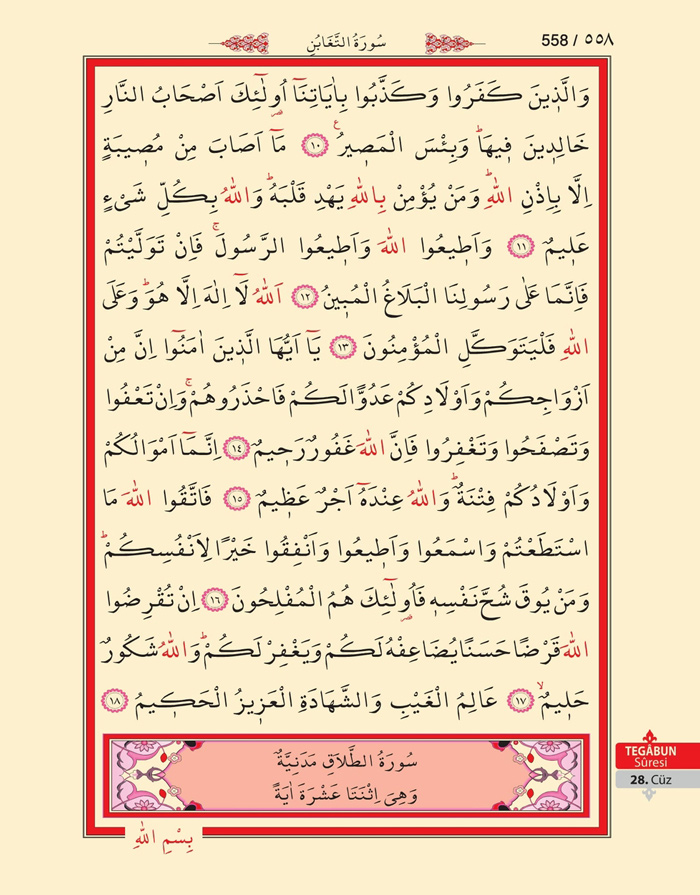 سُورَةُ التَّغَابُنِ
558 / ٥٥٨
وَالَّذ۪ينَ كَفَرُوا وَكَذَّبُوا بِاٰيَاتِنَٓا اُو۬لٰٓئِكَ اَصْحَابُ النَّارِ
خَالِد۪ينَ ف۪يهَاۜ وَبِئْسَ الْمَص۪يرُ۟ ﴿١٠﴾ مَٓا اَصَابَ مِنْ مُص۪يبَةٍ
اِلَّا بِاِذْنِ اللّٰهِۜ وَمَنْ يُؤْمِنْ بِاللّٰهِ يَهْدِ قَلْبَهُۜ وَاللّٰهُ بِكُلِّ شَيْءٍ
عَل۪يمٌ ﴿١١﴾ وَاَط۪يعُوا اللّٰهَ وَاَط۪يعُوا الرَّسُولَۚ فَاِنْ تَوَلَّيْتُمْ
فَاِنَّمَا عَلٰى رَسُولِنَا الْبَلَاغُ الْمُب۪ينُ ﴿١٢﴾ اَللّٰهُ لَٓا اِلٰهَ اِلَّا هُوَۜ وَعَلَى
اللّٰهِ فَلْيَتَوَكَّلِ الْمُؤْمِنُونَ ﴿١٣﴾ يَٓا اَيُّهَا الَّذ۪ينَ اٰمَنُٓوا اِنَّ مِنْ
اَزْوَاجِكُمْ وَاَوْلَادِكُمْ عَدُوًّا لَكُمْ فَاحْذَرُوهُمْۚ وَاِنْ تَعْفُوا
وَتَصْفَحُوا وَتَغْفِرُوا فَاِنَّ اللّٰهَ غَفُورٌ رَح۪يمٌ ﴿١٤﴾ اِنَّمَٓا اَمْوَالُكُمْ
وَاَوْلَادُكُمْ فِتْنَةٌۜ وَاللّٰهُ عِنْدَهُٓ اَجْرٌ عَظ۪يمٌ ﴿١٥﴾ فَاتَّقُوا اللّٰهَ مَا
اسْتَطَعْتُمْ وَاسْمَعُوا وَاَط۪يعُوا وَاَنْفِقُوا خَيْرًا لِاَنْفُسِكُمْۜ
وَمَنْ يُوقَ شُحَّ نَفْسِه۪ فَاُو۬لٰٓئِكَ هُمُ الْمُفْلِحُونَ ﴿١٦﴾ اِنْ تُقْرِضُوا
اللّٰهَ قَرْضًا حَسَنًا يُضَاعِفْهُ لَكُمْ وَيَغْفِرْ لَكُمْۜ وَاللّٰهُ شَكُورٌ
حَل۪يمٌۙ ﴿١٧﴾ عَالِمُ الْغَيْبِ وَالشَّهَادَةِ الْعَز۪يزُ الْحَك۪يمُ ﴿١٨﴾
سُورَةُ الطَّلَاقِ مَدَنِيَّةٌ
وَهِيَ اِثْنَتَا عَشْرَةَ اٰيَةً
بِسْمِ اللّٰهِ
TEGÂBUN
Sûresi
28. Cüz